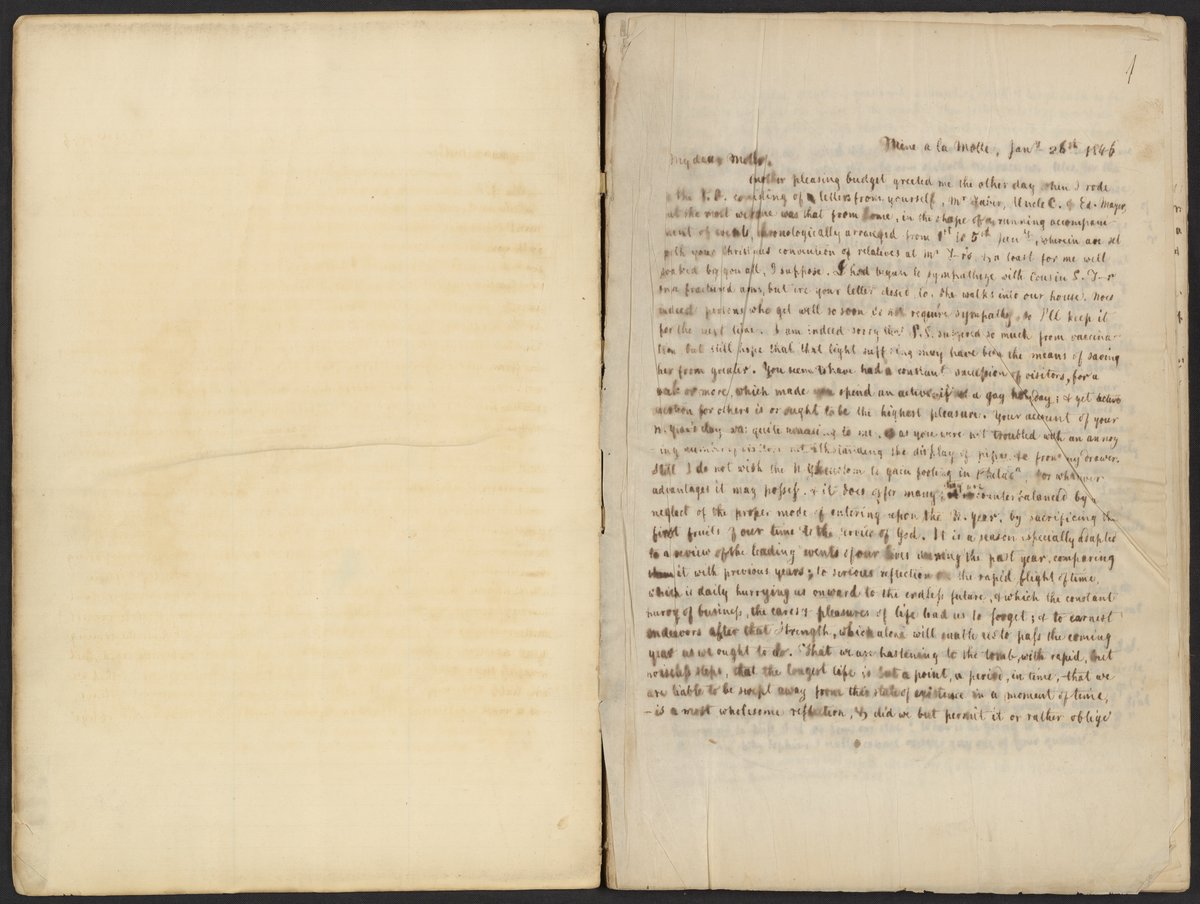 1
Mine a la Motte, Jany 26th 1846
My dear Mother,
Another pleasing budget greeted me the other day when I rode
to the P.O. consisting of letters from yourself, Mr Uncle C. & Ed. Mayer,
but the most welcome was that from home, in the shape of a running accompani
ment of events, chronologically arranged from 1st to 5th Jany, wherein are set
forth your Christmas convention of relatives at Mr T-r's & a toast for me well
soaked by you all, I suppose. I had begun to sympathize with Cousin S. T-r
on a fractured arm, but ere your letter closed, lo. she walks into our house. Now
indeed persons who get well so soon do not require sympathy, so I'll keep it
for the next time. I am indeed sorry that P.S. suffered so much from vaccina-
tion but still hope that that light suffering may have been the means of saving
her from greater. You seem to have had a constant succession of visitors, for a
week or more, which made you spend an active if not a gay holiday; & yet active
exertion for others is or ought to be the highest pleasure. Your account of your
N. Year's day was quite amusing to me, as you were not troubled with an annoy
ing number of visitors notwithstanding the display of pipes &c from my drawer.
Still I do not wish the N.Y. custom to gain footing in Philada, for whatever
advantages it may possess, & it does offer many, they are counterbalanced by a
neglect of the proper mode of entering upon the N. Year, by sacrificing the
first fruits of our time to the service of God. It is a season especially adapted
to a review of the leading events of our lives during the past year, comparing
it with previous years; to serious reflection on the rapid flight of time,
which is daily hurrying us onward to the endless future, & which the constant
hurry of business, the cares & pleasures of life lead us to forget; & to earnest
endeavors after that strength, which alone will enable us to pass the coming
year as we ought to do. That we are hastening to the tomb, with rapid, but
noiseless steps, that the longest life is but a point, a period, in time, that we
are liable to be swept away from this state of existence in a moment of time,
– is a most wholesome reflection, & did we but permit it or rather oblige